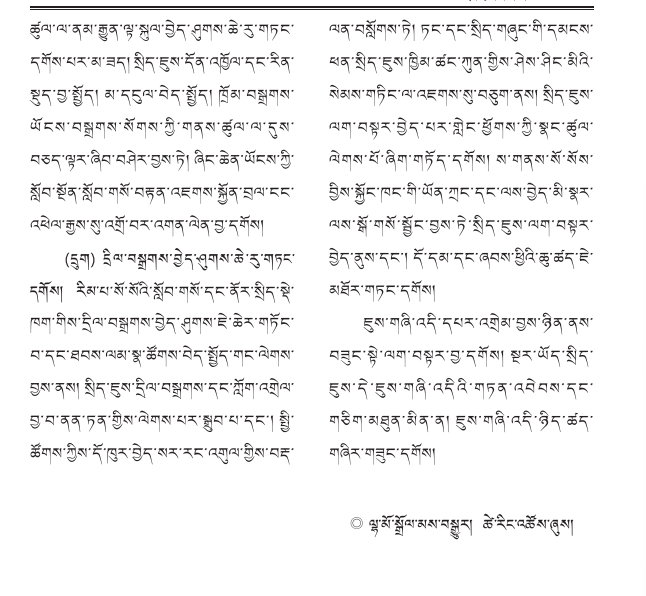 ཚུལ་ལ་ནམ་རྒྱུན་ལྟ་སྐུལ་བྱེད་ཤུགས་ཆེ་རུ་གཏང་
དགོས་པར་མ་ཟད། སྲིད་ཇུས་དོན་འཁྱོལ་དང་རིན་
སྡུད་བྱ་སྤྱོད། མ་དངུལ་བེད་སྤྱོད། ཁྲོམ་བསྒྲགས་
ཡོངས་བསྒྲགས་སོགས་ཀྱི་གནས་ཚུལ་ལ་དུས་
བཅད་ལྟར་ཞིབ་བཤེར་བྱས་ཏེ། ཞིང་ཆེན་ཡོངས་ཀྱི་
སློབ་སྔོན་སློབ་གསོ་བརྟན་འཇགས་སྐྱོན་བྲལ་ངང་
འཕེལ་རྒྱས་སུ་འགྲོ་བར་འགན་ལེན་བྱ་དགོས།
(དྲུག) དྲིལ་བསྒྲགས་བྱེད་ཤུགས་ཆེ་རུ་གཏང་
དགོས། རིམ་པ་སོ་སོའི་སློབ་གསོ་དང་ནོར་སྲིད་སྡེ་
ཁག་གིས་དྲིལ་བསྒྲགས་བྱེད་ཤུགས་ཇེ་ཆེར་གཏོང་
བ་དང་ཐབས་ལམ་སྣ་ཚོགས་བེད་སྤྱོད་གང་ལེགས་
བྱས་ནས། སྲིད་ཇུས་དྲིལ་བསྒྲགས་དང་ཀློག་འགྲེལ་
བྱ་བ་ནན་ཏན་གྱིས་ལེགས་པར་སྒྲུབ་པ་དང་། སྤྱི་
ཚོགས་ཀྱིས་དོ་ཁུར་བྱེད་སར་རང་འགུལ་གྱིས་བརྡ་
ལན་བསློགས་ཏེ། ཏང་དང་སྲིད་གཞུང་གི་དམངས་
ཕན་སྲིད་ཇུས་ཁྱིམ་ཚང་ཀུན་གྱིས་ཤེས་ཤིང་མིའི་
སེམས་གཏིང་ལ་འཇགས་སུ་བཅུག་ནས། སྲིད་ཇུས་
ལག་བསྟར་བྱེད་པར་གླེང་ཕྱོགས་ཀྱི་སྣང་ཚུལ་
ལེགས་པོ་ཞིག་གཏོད་དགོས། ས་གནས་སོ་སོས་
བྱིས་སྐྱོང་ཁང་གི་ཡོན་ཀྲང་དང་ལས་བྱེད་མི་སྣར་
ལས་སྒོ་གསོ་སྦྱོང་བྱས་ཏེ་སྲིད་ཇུས་ལག་བསྟར་
བྱེད་ནུས་དང་། དོ་དམ་དང་ཞབས་ཕྱིའི་ཆུ་ཚད་ཇེ་
མཐོར་གཏང་དགོས།
ཇུས་གཞི་འདི་དཔར་འགྲེམ་བྱས་ཉིན་ནས་
བཟུང་སྟེ་ལག་བསྟར་བྱ་དགོས། སྔར་ཡོད་སྲིད་
ཇུས་དེ་ཇུས་གཞི་འདིའི་གཏན་འབེབས་དང་
གཅིག་མཐུན་མིན་ན། ཇུས་གཞི་འདི་ཉིད་ཚད་
གཞིར་གཟུང་དགོས།
◎ ལྷ་མོ་སྒྲོལ་མས་བསྒྱུར། ཚེ་རིང་འཚོས་ཞུས།